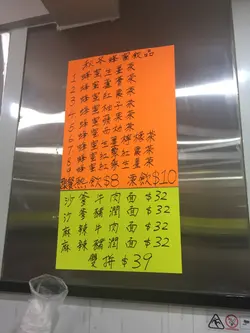 秋冬蜂蜜飲品
1 蜂蜜生薑茶
2 蜂蜜蘆薈茶
3 蜂蜜紅棗茶
4 蜂蜜柚子茶
5 蜂蜜
6 蜂蜜
7 蜂蜜生薑檸檬茶
8 蜂蜜紅棗
9 蜂蜜紅棗生薑茶
熱飲$8 凍飲$10
沙爹牛肉面 $32
沙爹豬潤面 $32
麻辣牛肉面 $32
麻辣豬潤面 $32
雙拼$39